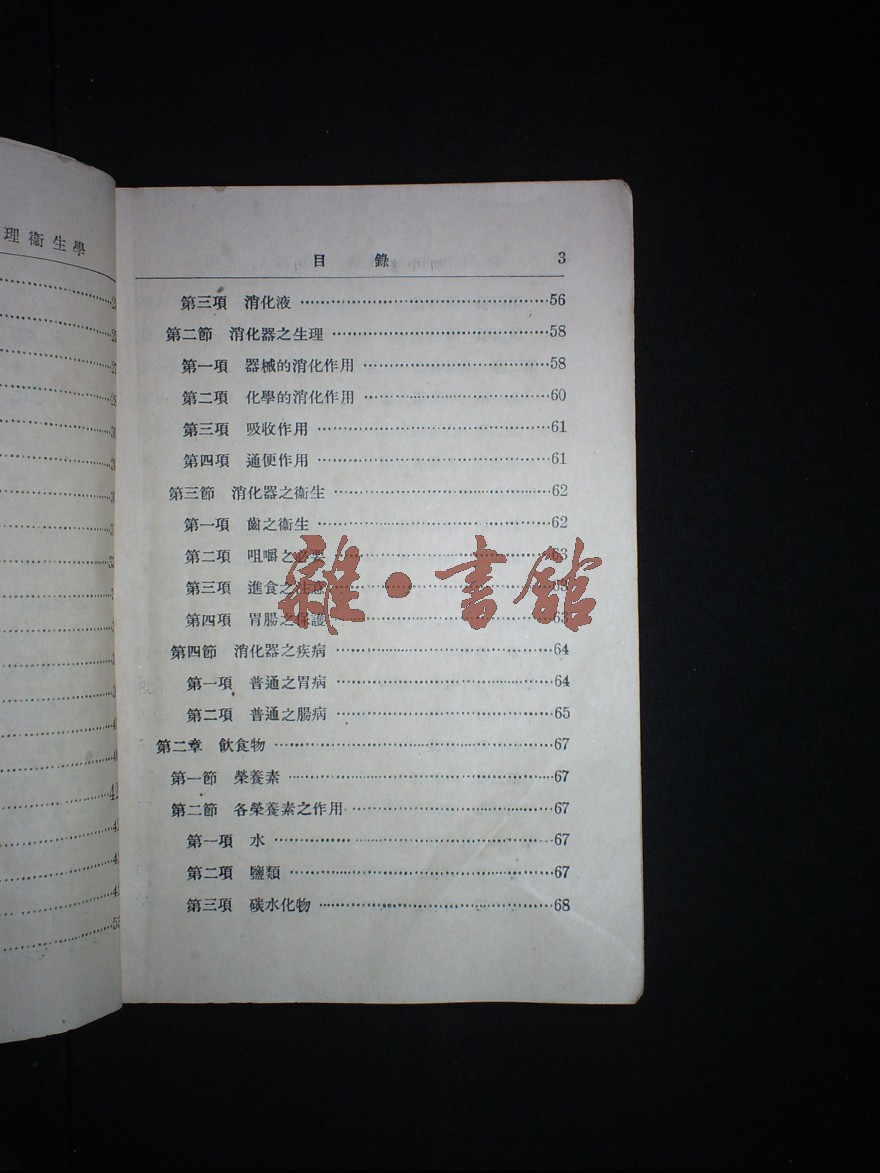 理衞生學
目錄 3
第三項 消化液 56
第二節 消化器之生理 58
第一項 器械的消化作用 58
第二項 化學的消化作用 60
第三項 吸收作用 61
第四項 通便作用 61
第三節 消化器之衞生 62
第一項 齒之衞生 62
第二項 咀嚼之必要 63
第三項 進食之注意 63
第四項 胃腸之保護 63
雜·書館
第四節 消化器之疾病 64
第一項 普通之胃病 64
第二項 普通之腸病 65
第二章 飲食物 67
第一節 榮養素 67
第二節 各榮養素之作用 67
第一項 水 67
第二項 鹽類 67
第三項 碳水化物 68